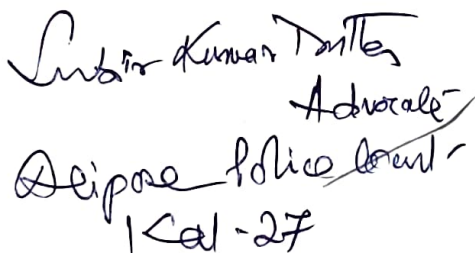 Subir Kumar Dutta
Advocate
Alipore Police Court
Kol-27